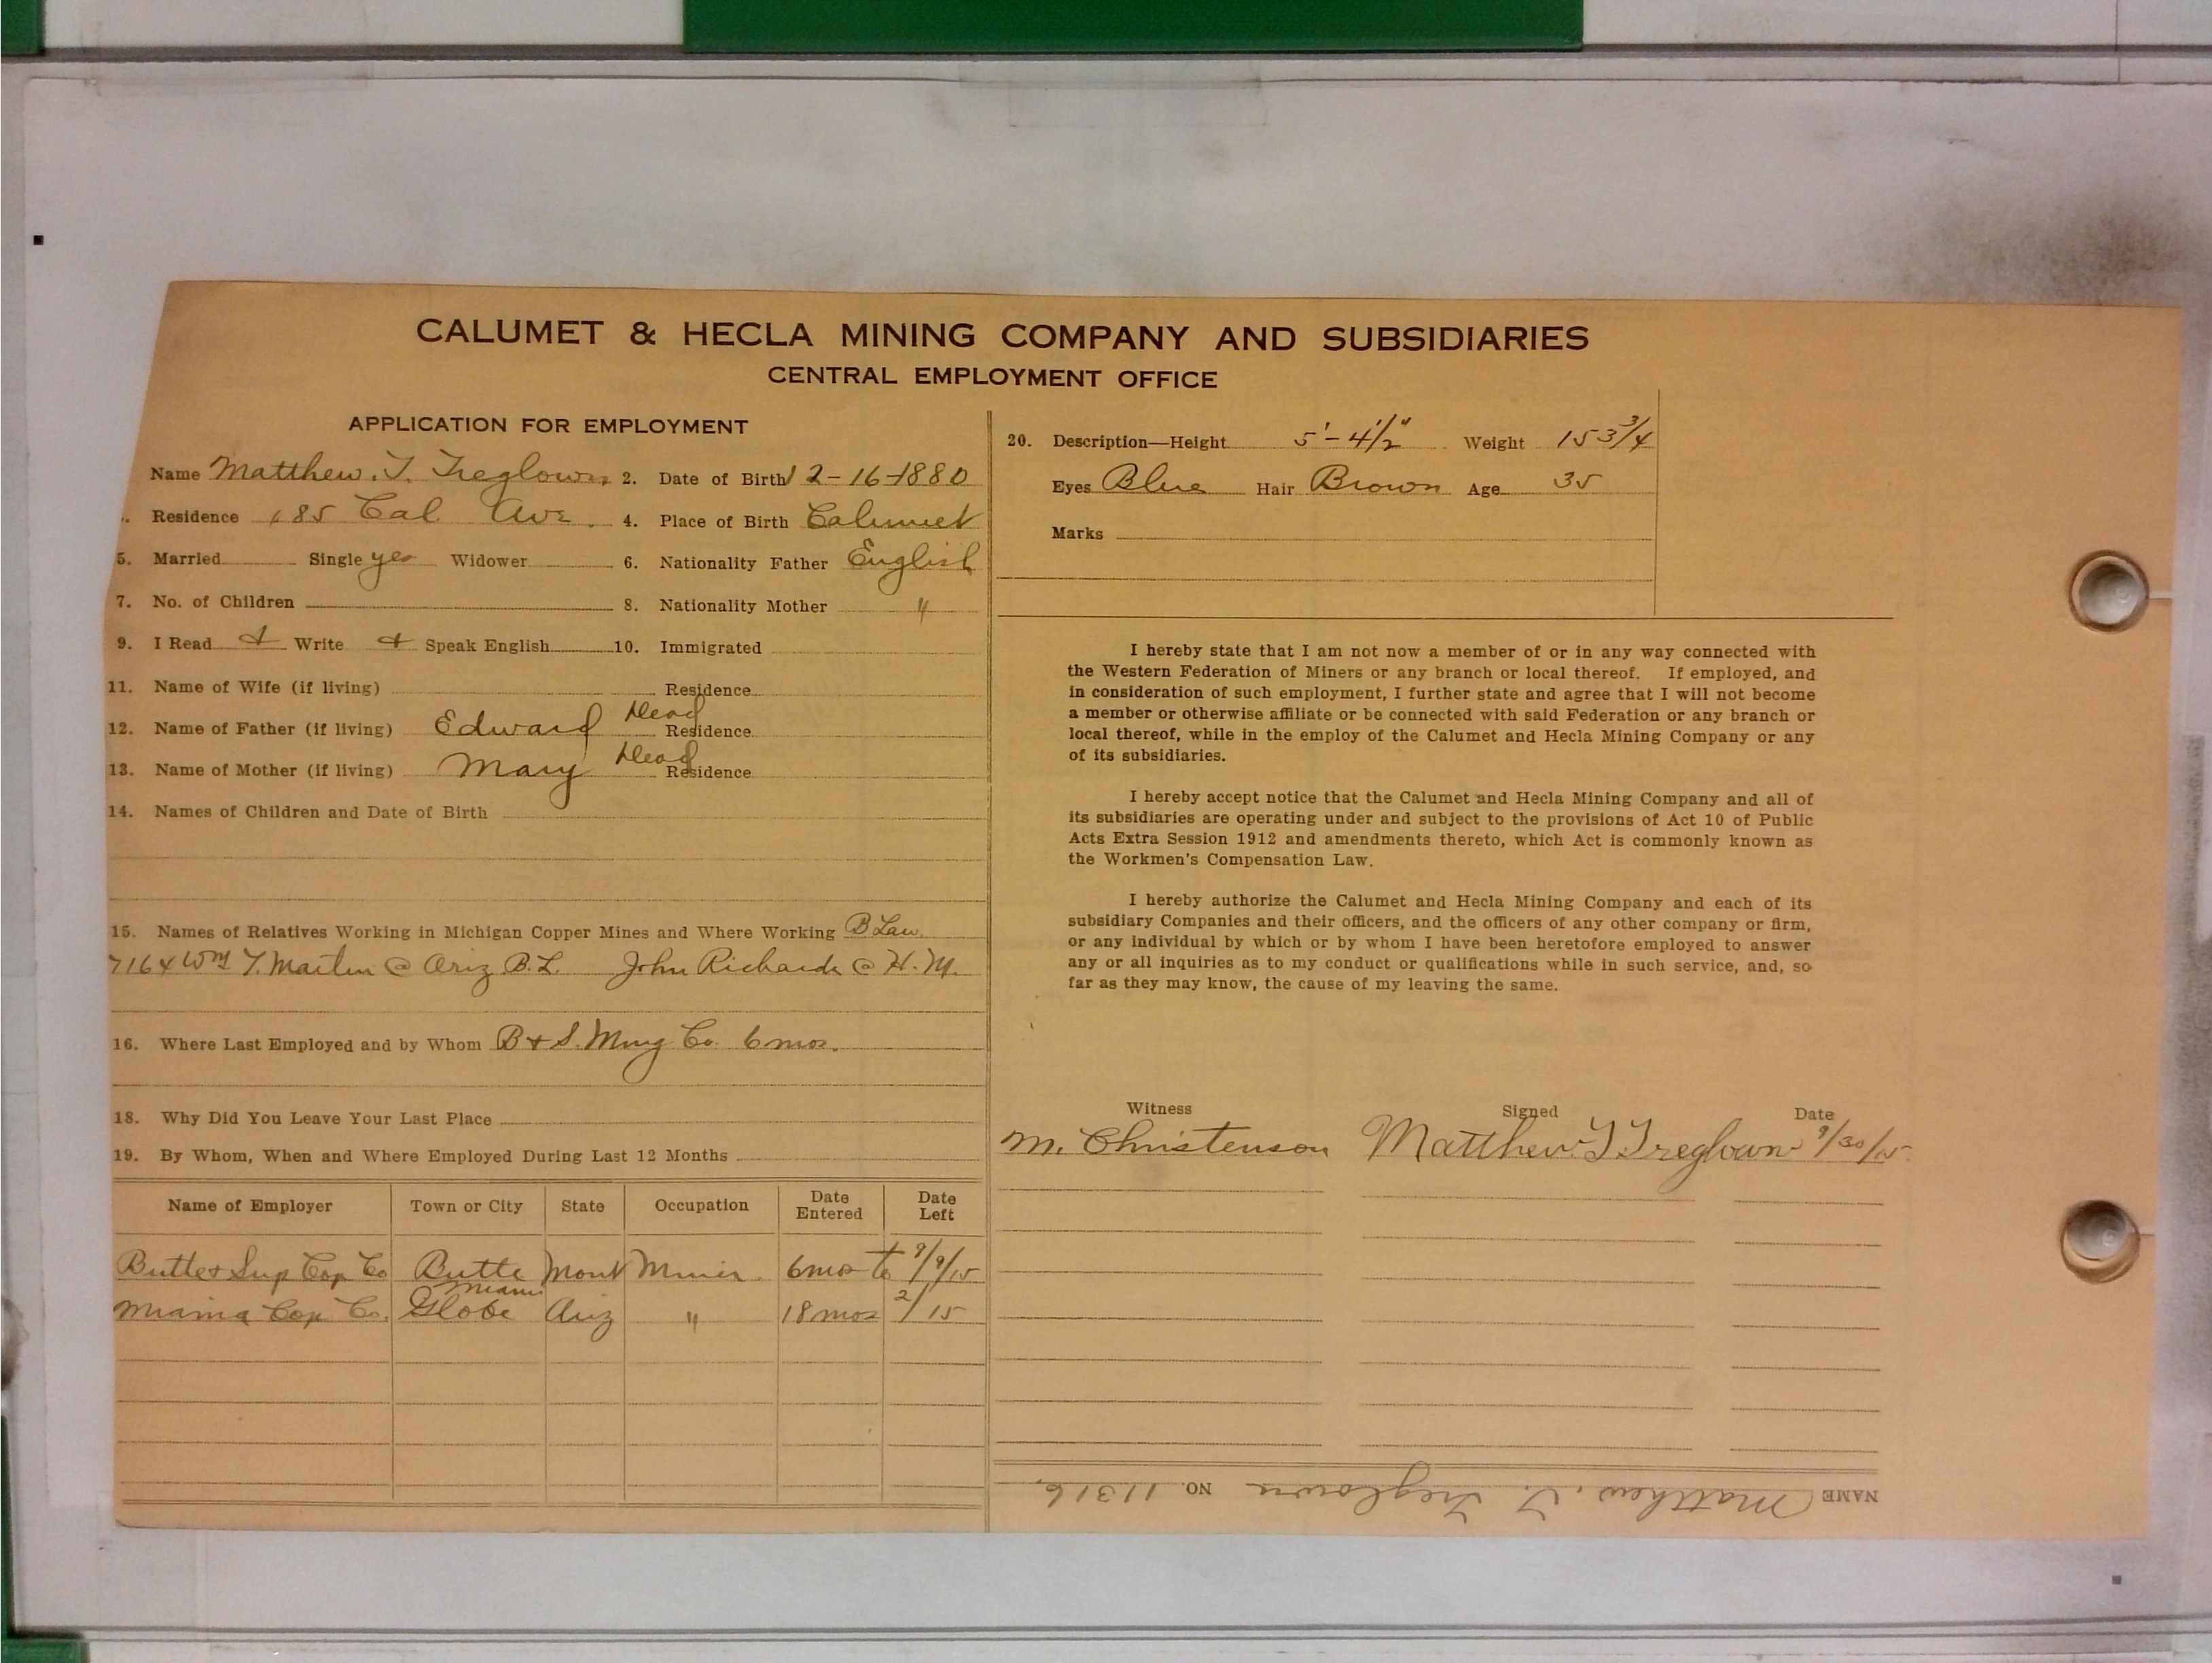 CALUMET & HECLA MINING COMPANY AND SUBSIDIARIES
CENTRAL EMPLOYMENT OFFICE
APPLICATION FOR EMPLOYMENT
Name Matthew. T. Treglown 2. Date of Birth 12-16-1880
Residence 185 Cal Ave. 4. Place of Birth Calumet
5. Married Single yes Widower 6. Nationality Father English
7. No. of Children 8. Nationality Mother "
9. I Read + Write + Speak English 10. Immigrated
11. Name of Wife (if living) Residence
12. Name of Father (if living) Edward Dead Residence
13. Name of Mother (if living) Mary Dead Residence
14. Names of Children and Date of Birth
15. Names of Relatives Working in Michigan Copper Mines and Where Working B Law.
7164 Wm T. Martin @ Ariz B.L. John Richards @ H.M.
16. Where Last Employed and by Whom B + S. Mng Co. 6 mos.
18. Why Did You Leave Your Last Place
19. By Whom, When and Where Employed During Last 12 Months
Name of Employer Town or City State Occupation Date Entered Date Left
Butte & Sup Cop Co Butte Mont Miner 6mos to 9/9/15
Miama Cop Co. Miami Globe Ariz " 18 mos 2/15
20. Description—Height 5'-4 1/2" Weight 153 3/4
Eyes Blue Hair Brown Age 35
Marks
I hereby state that I am not now a member of or in any way connected with
the Western Federation of Miners or any branch or local thereof. If employed, and
in consideration of such employment, I further state and agree that I will not become
a member or otherwise affiliate or be connected with said Federation or any branch or
local thereof, while in the employ of the Calumet and Hecla Mining Company or any
of its subsidiaries.
I hereby accept notice that the Calumet and Hecla Mining Company and all of
its subsidiaries are operating under and subject to the provisions of Act 10 of Public
Acts Extra Session 1912 and amendments thereto, which Act is commonly known as
the Workmen's Compensation Law.
I hereby authorize the Calumet and Hecla Mining Company and each of its
subsidiary Companies and their officers, and the officers of any other company or firm,
or any individual by which or by whom I have been heretofore employed to answer
any or all inquiries as to my conduct or qualifications while in such service, and, so
far as they may know, the cause of my leaving the same.
Witness Signed Date
M. Christenson Matthew T Treglown 9/30/15
NAME Matthew. T. Treglown NO. 11316